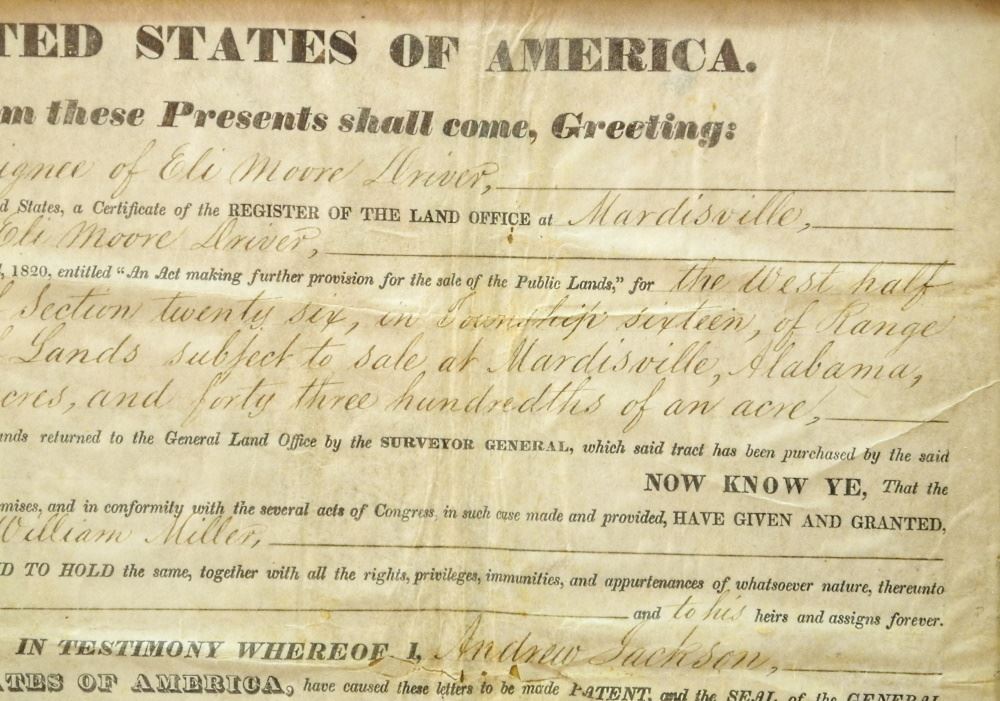 TED STATES OF AMERICA.
m these Presents shall come, Greeting:
ignee of Eli Moore Driver,
d States, a Certificate of the REGISTER OF THE LAND OFFICE at Mardisville,
Eli Moore Driver,
, 1820, entitled “An Act making further provision for the sale of the Public Lands,” for the West half
Section twenty six, in Township sixteen, of Range
Lands subject to sale at Mardisville, Alabama,
cres, and forty three hundredths of an acre,
nds returned to the General Land Office by the SURVEYOR GENERAL, which said tract has been purchased by the said
NOW KNOW YE, That the
mises, and in conformity with the several acts of Congress, in such case made and provided, HAVE GIVEN AND GRANTED,
William Miller,
D TO HOLD the same, together with all the rights, privileges, immunities, and appurtenances of whatsoever nature, thereunto
and to his heirs and assigns forever.
IN TESTIMONY WHEREOF I, Andrew Jackson,
ATES OF AMERICA, have caused these letters to be made PATENT, and the SEAL of the GENERAL